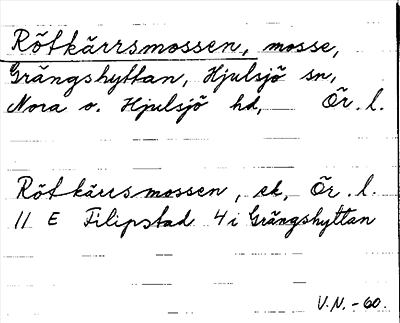 Rötkärrsmossen, mosse,
Grängshyttan, Hjulsjö sn,
Nora o. Hjulsjö hd, Ör. l.
Rötkärrsmossen, ek, Ör. l.
11 E Filipstad 4 i Grängshyttan
V.N. -60.